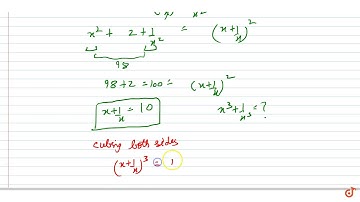 x² + 2 + 1/x² = (x + 1/x)²
98
98 + 2 = 100 = (x + 1/x)²
x + 1/x = 10
x³ + 1/x³ = ?
Cubing both sides
(x + 1/x)³ = 1